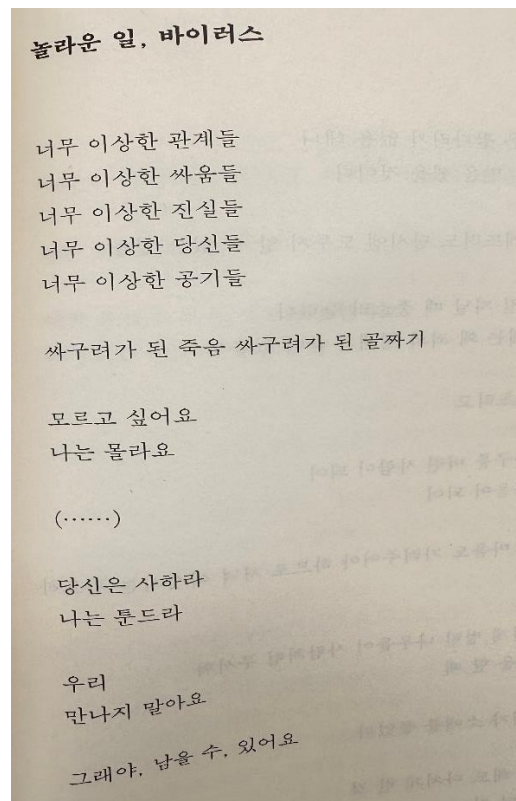 놀라운 일, 바이러스
너무 이상한 관계들
너무 이상한 싸움들
너무 이상한 진실들
너무 이상한 당신들
너무 이상한 공기들
싸구려가 된 죽음 싸구려가 된 골짜기
모르고 싶어요
나는 몰라요
(……)
당신은 사하라
나는 툰드라
우리
만나지 말아요
그래야, 남을 수, 있어요